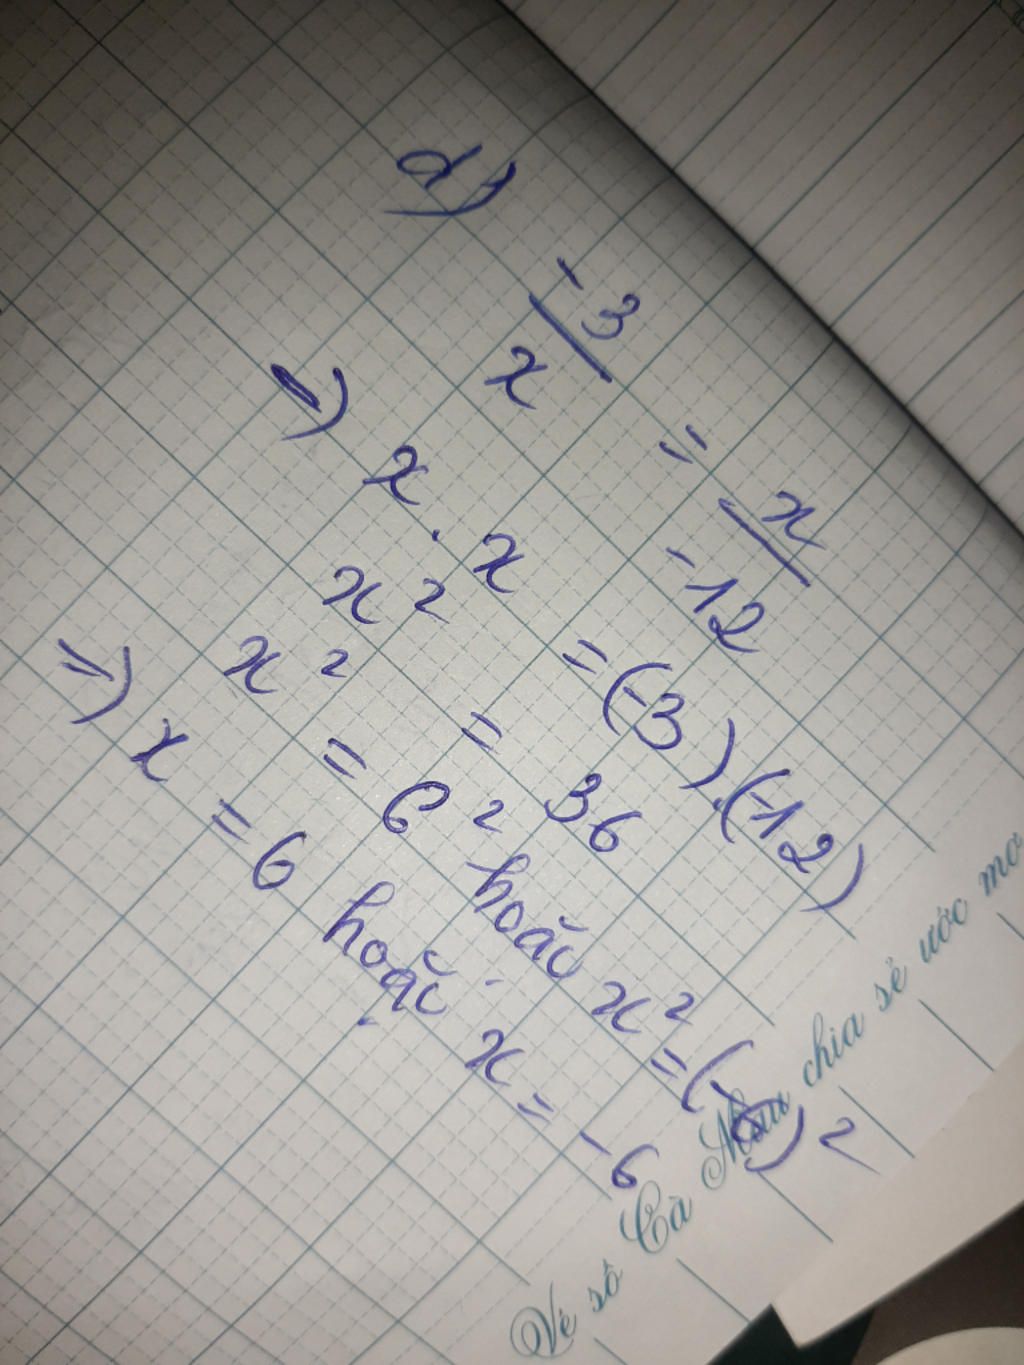 d)
-3/x = x/-12
=) x . x = (-3).(-12)
x² = 36
x² = 6² hoặc x² = (-6)²
=) x = 6 hoặc x = -6
Vé số Cà Mau chia sẻ ước mơ